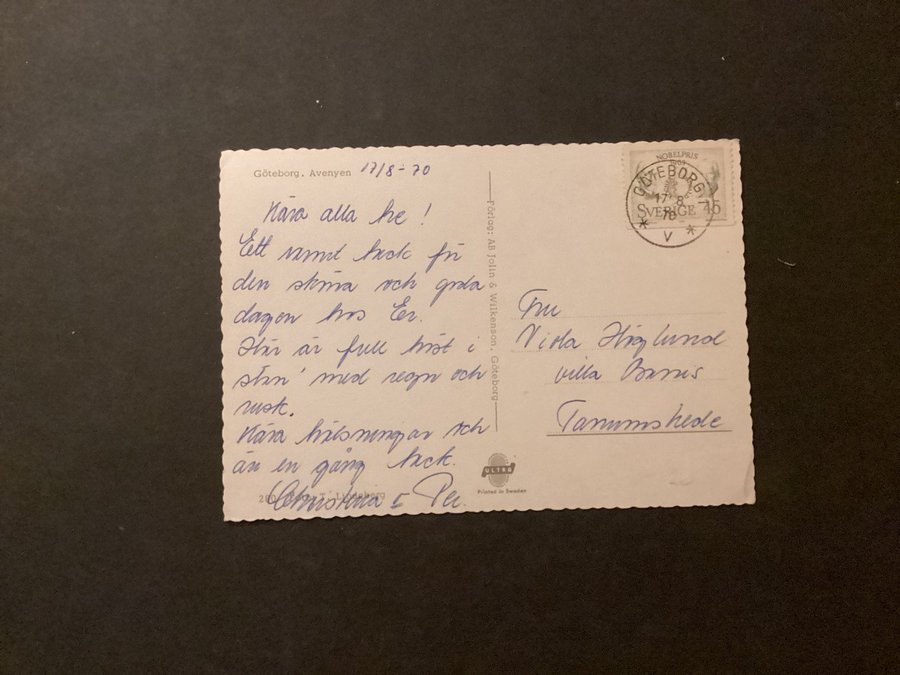 Göteborg. Avenyen 17/8-70
Kära alla tre!
Ett varmt tack för
den sköna och goda
dagen hos Er.
Här är full höst i
stan' med regn och
rusk.
Kära hälsningar och
än en gång tack.
Christina & Per.
Förlag: AB Jolin & Wilkenson, Göteborg
NOBELPRIS
GÖTEBORG 1
17 8
70
SVERIGE 45
* V *
Fru
Höglund
villa
Tanumshede
ULTRA
Printed in Sweden